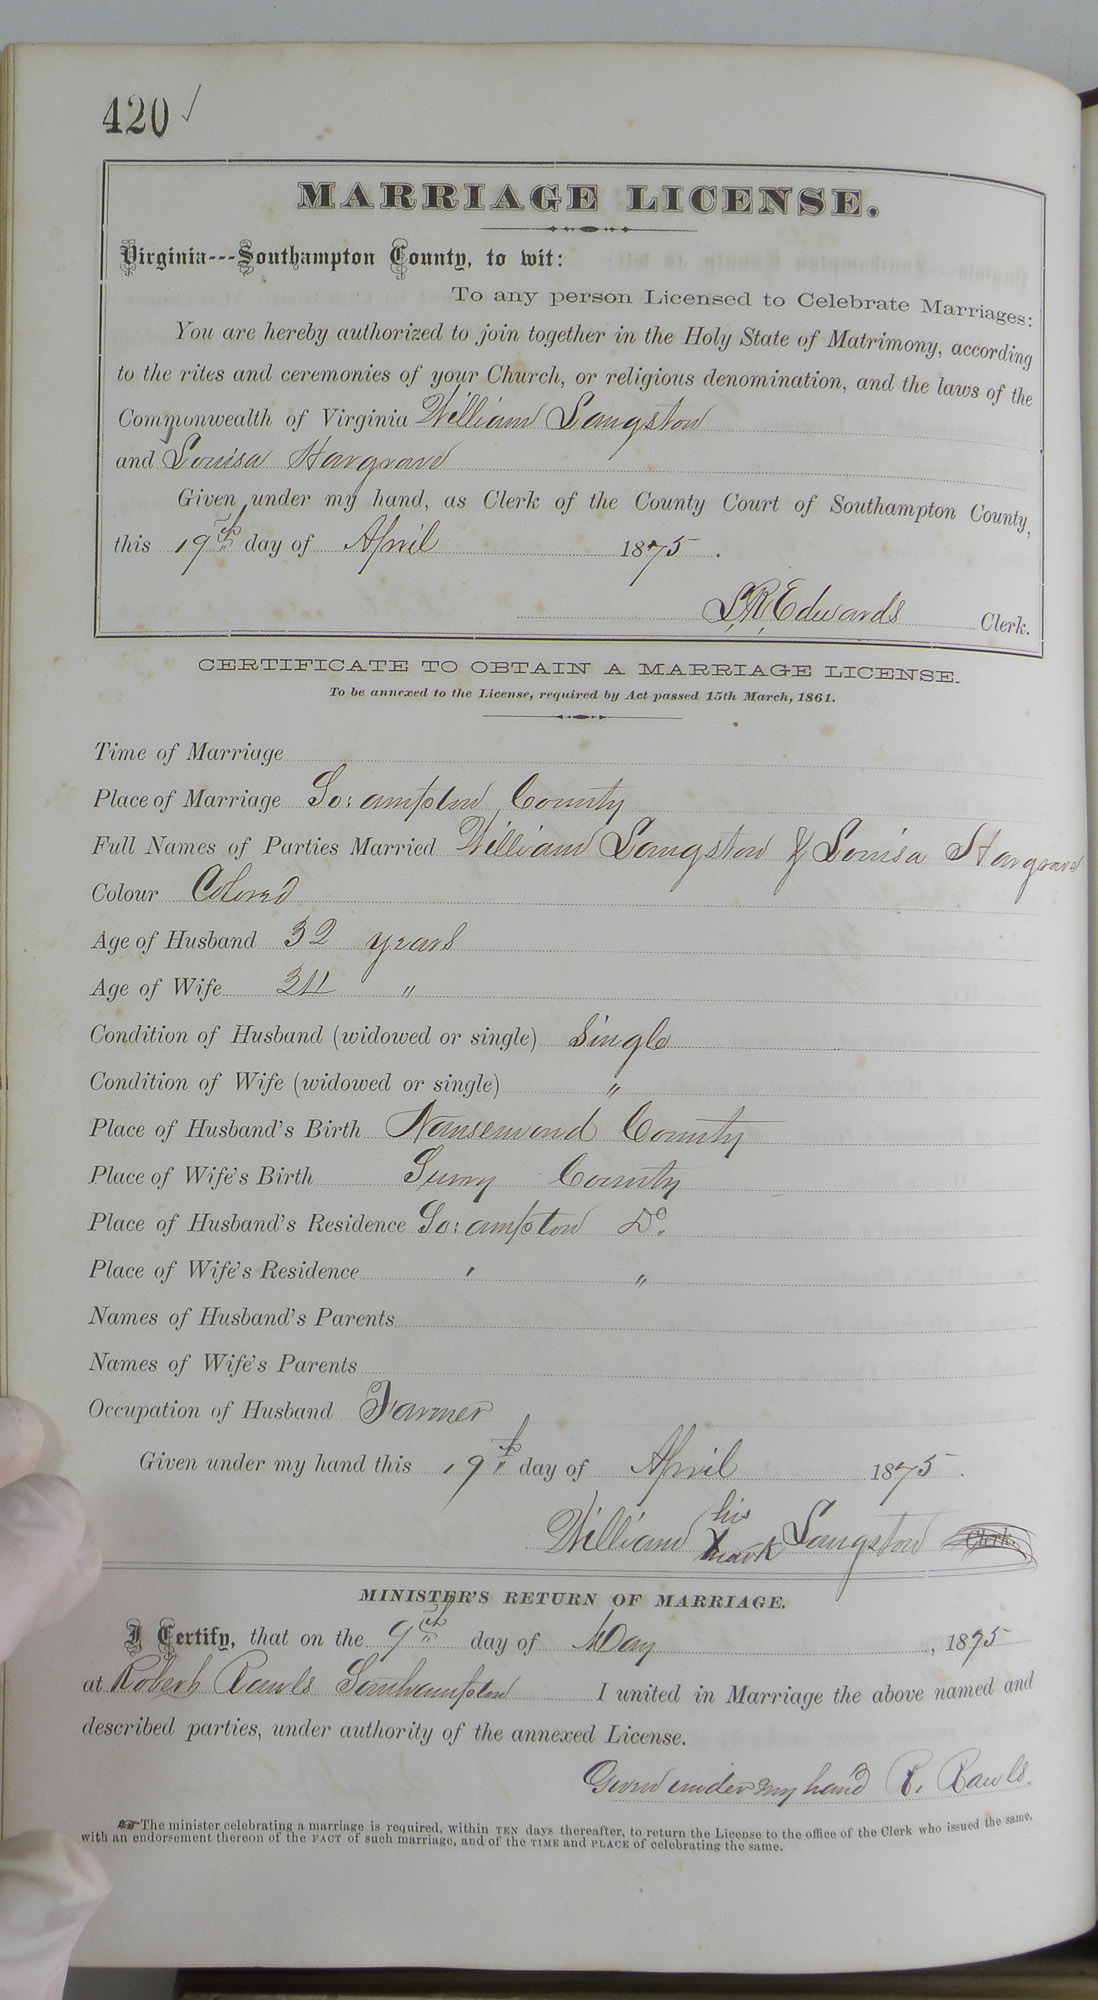 420 ✓
MARRIAGE LICENSE.
Virginia---Southampton County, to wit:
To any person Licensed to Celebrate Marriages:
You are hereby authorized to join together in the Holy State of Matrimony, according
to the rites and ceremonies of your Church, or religious denomination, and the laws of the
Commonwealth of Virginia William Langston
and Louisa Hargrave
Given under my hand, as Clerk of the County Court of Southampton County,
this 19th day of April 1875.
L. R. Edwards Clerk.
CERTIFICATE TO OBTAIN A MARRIAGE LICENSE.
To be annexed to the License, required by Act passed 15th March, 1861.
Time of Marriage
Place of Marriage So: ampton County
Full Names of Parties Married William Langston & Louisa Hargrave
Colour Colored
Age of Husband 32 years
Age of Wife 34 "
Condition of Husband (widowed or single) Single
Condition of Wife (widowed or single) "
Place of Husband's Birth Nansemond County
Place of Wife's Birth Surry County
Place of Husband's Residence So: ampton Do.
Place of Wife's Residence ' "
Names of Husband's Parents
Names of Wife's Parents
Occupation of Husband Farmer
Given under my hand this 19th day of April 1875.
William his X mark Langston Clerk.
MINISTER'S RETURN OF MARRIAGE.
I Certify, that on the 9th day of May, 1875
at Robert Rawls Southampton I united in Marriage the above named and
described parties, under authority of the annexed License.
Given under my hand R. Rawls.
☞ The minister celebrating a marriage is required, within TEN days thereafter, to return the License to the office of the Clerk who issued the same,
with an endorsement thereon of the FACT of such marriage, and of the TIME and PLACE of celebrating the same.